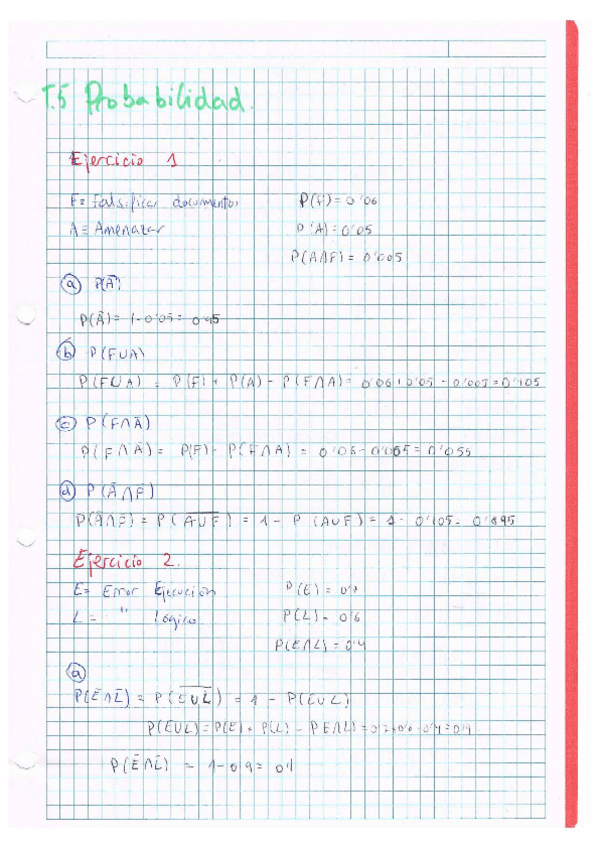 T.5 Probabilidad.
Ejercicio 1
F = Falsificar documentos P(F) = 0'06
A = Amenazar P(A) = 0'05
P(A∩F) = 0'005
a) P(Ā)
P(Ā) = 1 - 0'05 = 0'95
b) P(F∪A)
P(F∪A) = P(F) + P(A) - P(F∩A) = 0'06 + 0'05 - 0'005 = 0'105
c) P(F∩Ā)
P(F∩Ā) = P(F) - P(F∩A) = 0'06 - 0'005 = 0'055
d) P(Ā∩F̄)
P(Ā∩F̄) = P(\overline{A∪F}) = 1 - P(A∪F) = 1 - 0'105 = 0'895
Ejercicio 2.
E = Error Ejecución P(E) = 0'7
L = " lógico P(L) = 0'6
P(E∩L) = 0'4
a)
P(Ē∩L̄) = P(\overline{E∪L}) = 1 - P(E∪L)
P(E∪L) = P(E) + P(L) - P(E∩L) = 0'7 + 0'6 - 0'4 = 0'9
P(Ē∩L̄) = 1 - 0'9 = 0'1